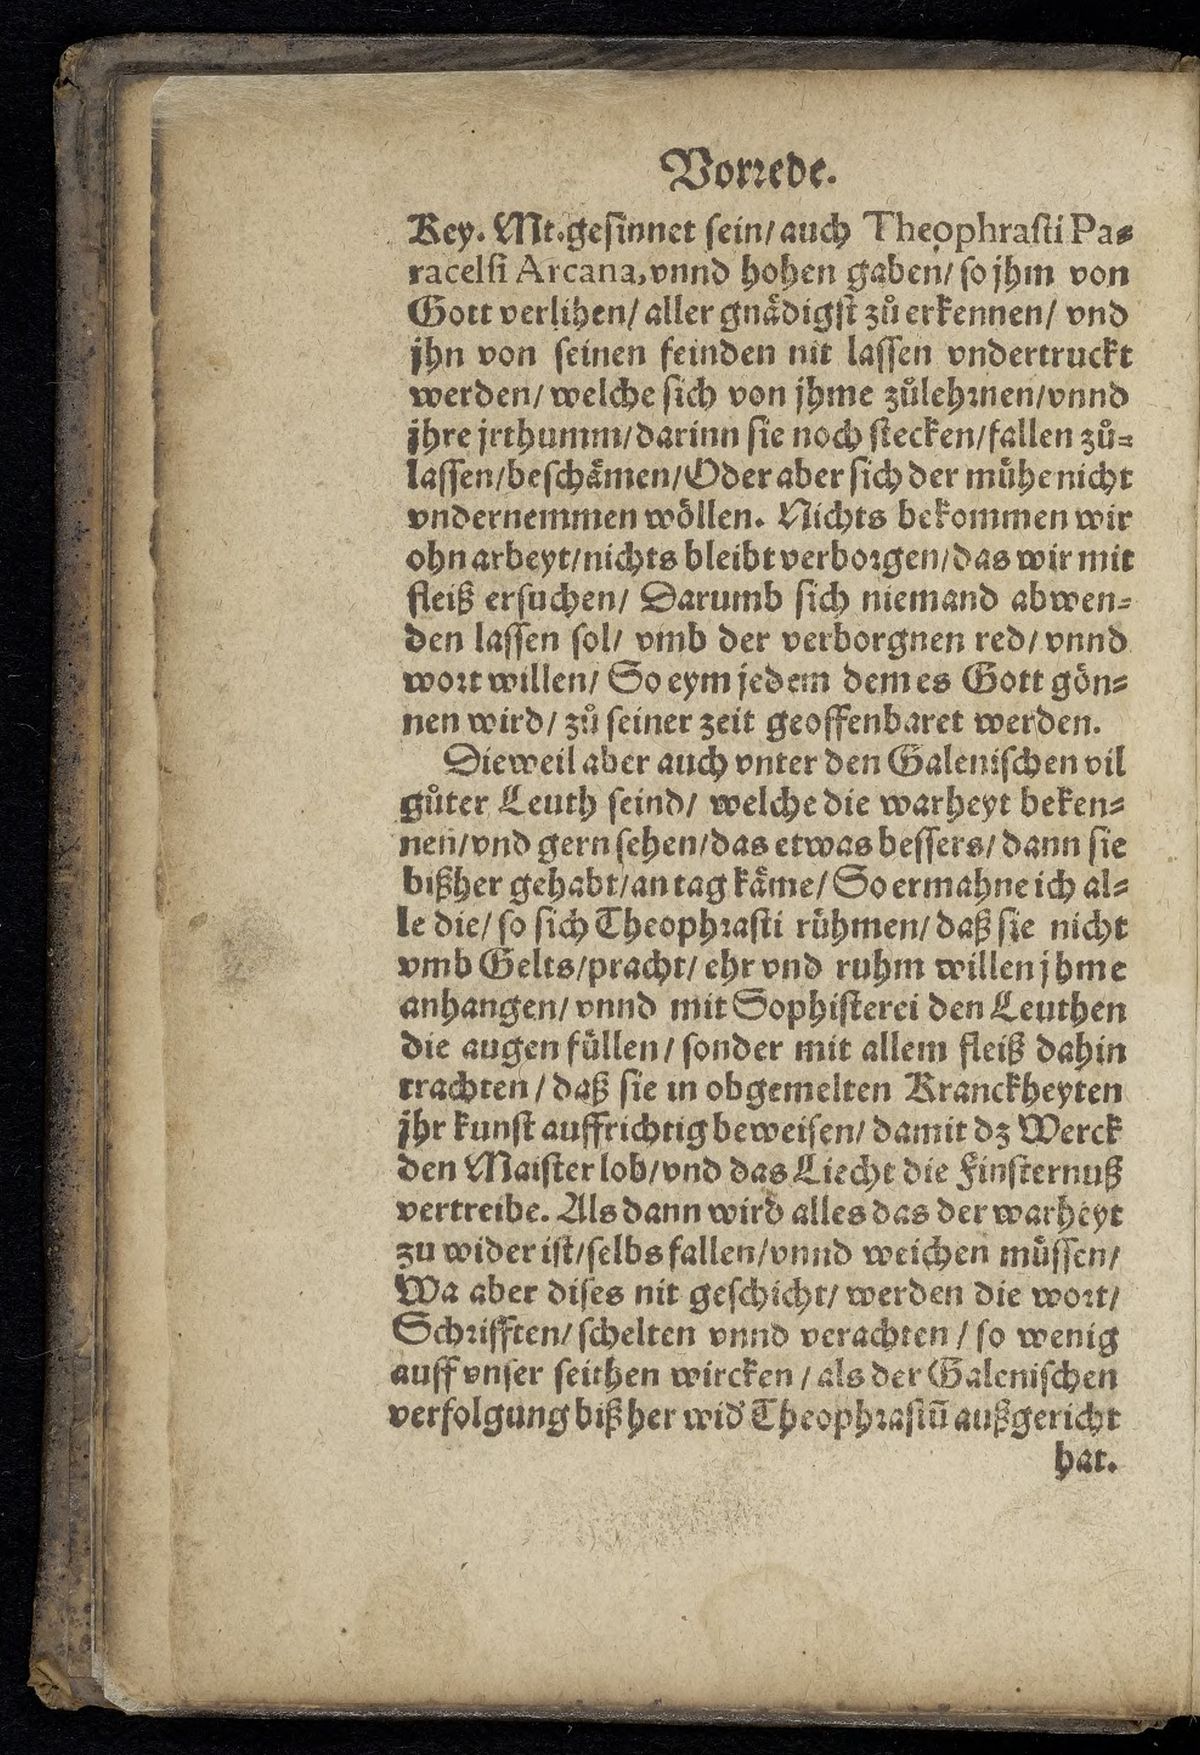 Vorrede.
Key. Mt. gesinnet sein/ auch Theophrasti Pa-
racelsi Arcana, vnnd hohen gaben/ so jhm von
Gott verlihen/ aller gnaͤdigst zuͦ erkennen/ vnd
jhn von seinen feinden nit lassen vndertruckt
werden/ welche sich von jhme zuͦlehrnen/ vnnd
jhre jrthumm/ darinn sie noch stecken/ fallen zuͦ-
lassen/ beschaͤmen/ Oder aber sich der muͤhe nicht
vndernemmen woͤllen. Nichts bekommen wir
ohn arbeyt/ nichts bleibt verborgen/ das wir mit
fleiß ersuchen/ Darumb sich niemand abwen-
den lassen sol/ vmb der verborgnen red/ vnnd
wort willen/ So eym jedem dem es Gott goͤn-
nen wird/ zuͦ seiner zeit geoffenbaret werden.
Dieweil aber auch vnter den Galenischen vil
guͦter Leuth seind/ welche die warheyt beken-
nen/ vnd gern sehen/ das etwas bessers/ dann sie
bißher gehabt/ an tag kaͤme/ So ermahne ich al-
le die/ so sich Theophrasti ruͤhmen/ daß sie nicht
vmb Gelts/ pracht/ ehr vnd ruhm willen jhme
anhangen/ vnnd mit Sophisterei den Leuthen
die augen fuͤllen/ sonder mit allem fleiß dahin
trachten/ daß sie in obgemelten Kranckheyten
jhr kunst auffrichtig beweisen/ damit dz Werck
den Maister lob/ vnd das Liecht die Finsternuß
vertreibe. Als dann wird alles das der warheyt
zu wider ist/ selbs fallen/ vnnd weichen muͤssen/
Wa aber dises nit geschicht/ werden die wort/
Schrifften/ schelten vnnd verachten/ so wenig
auff vnser seithen wircken/ als der Galenischen
verfolgung bißher wid' Theophrastū außgericht
hat.